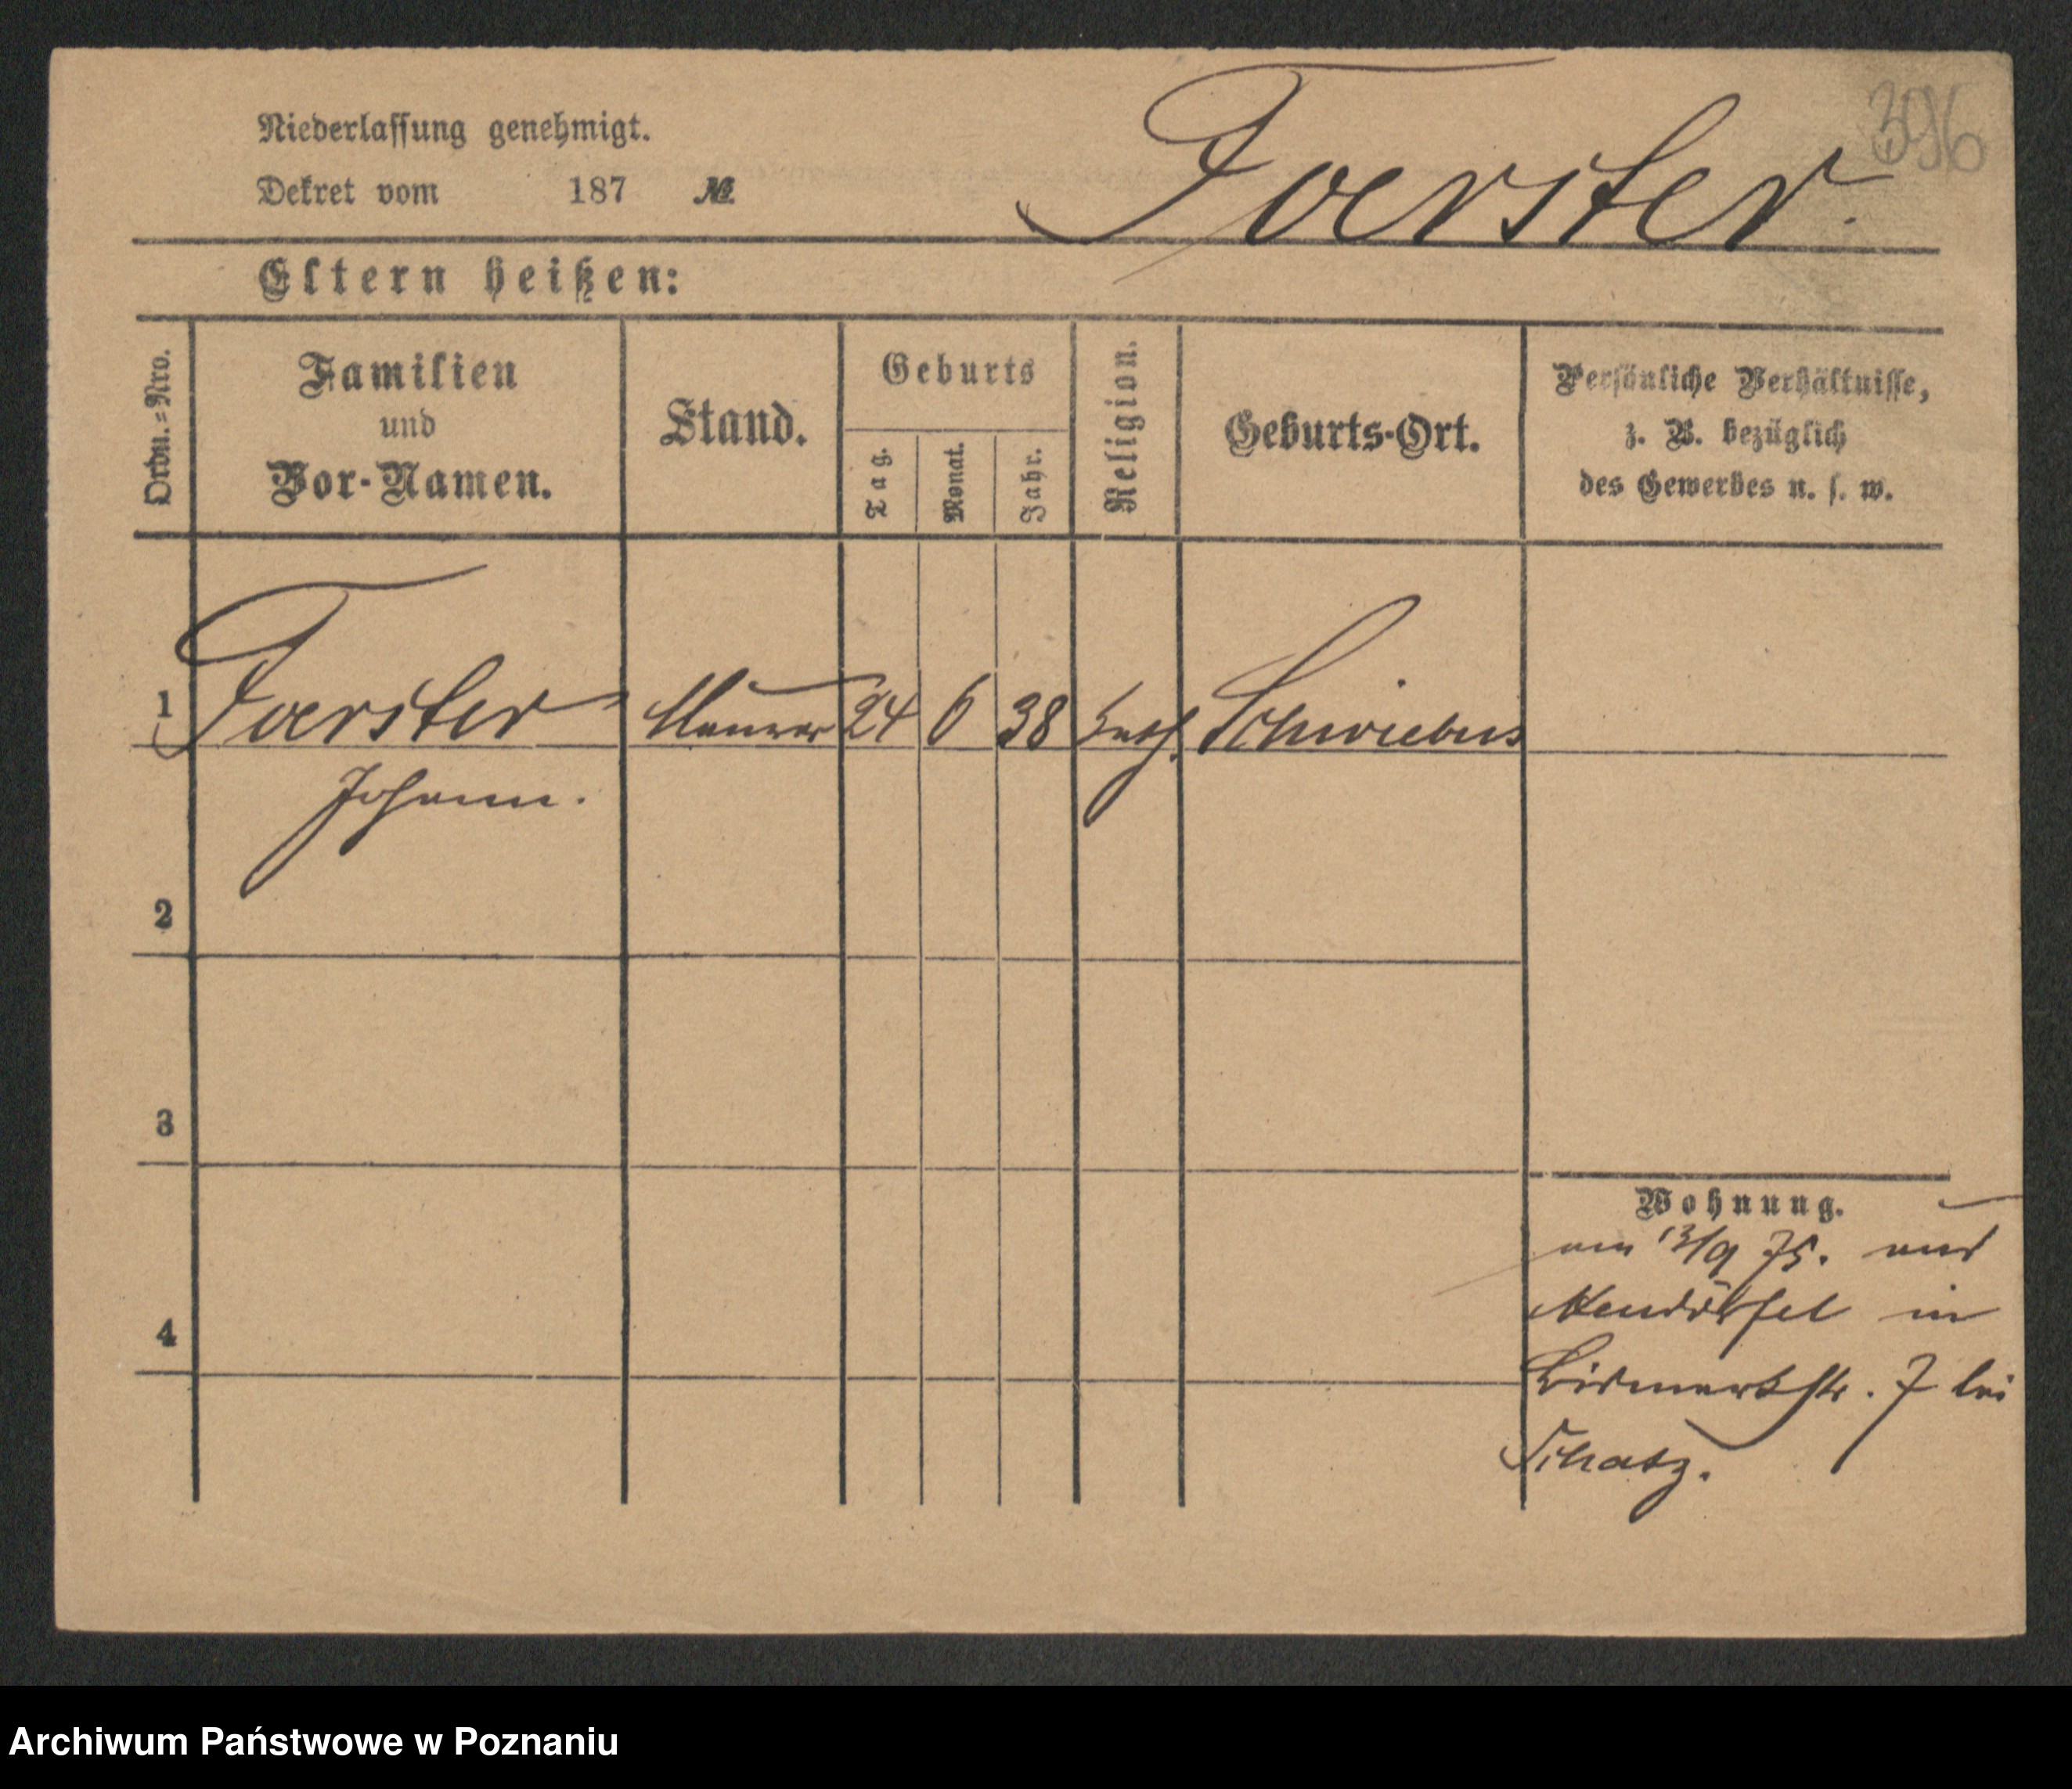 396
Niederlassung genehmigt.
Foerster.
Dekret vom 187 №
Eltern heißen:
Ordn.=Nro.
Familien
und
Vor-Namen.
Stand.
Geburts
Tag.
Monat.
Jahr.
Religion.
Geburts-Ort.
Persönliche Verhältnisse,
z. B. bezüglich
des Gewerbes u. s. w.
1 Foerster Maurer 24 6 38 kath. Schwiebus
Johann.
2
3
4
Wohnung.
am 13/9 75. aus
Neudörfel in
Bismarkstr. 7 bei
Schatz.
Archiwum Państwowe w Poznaniu